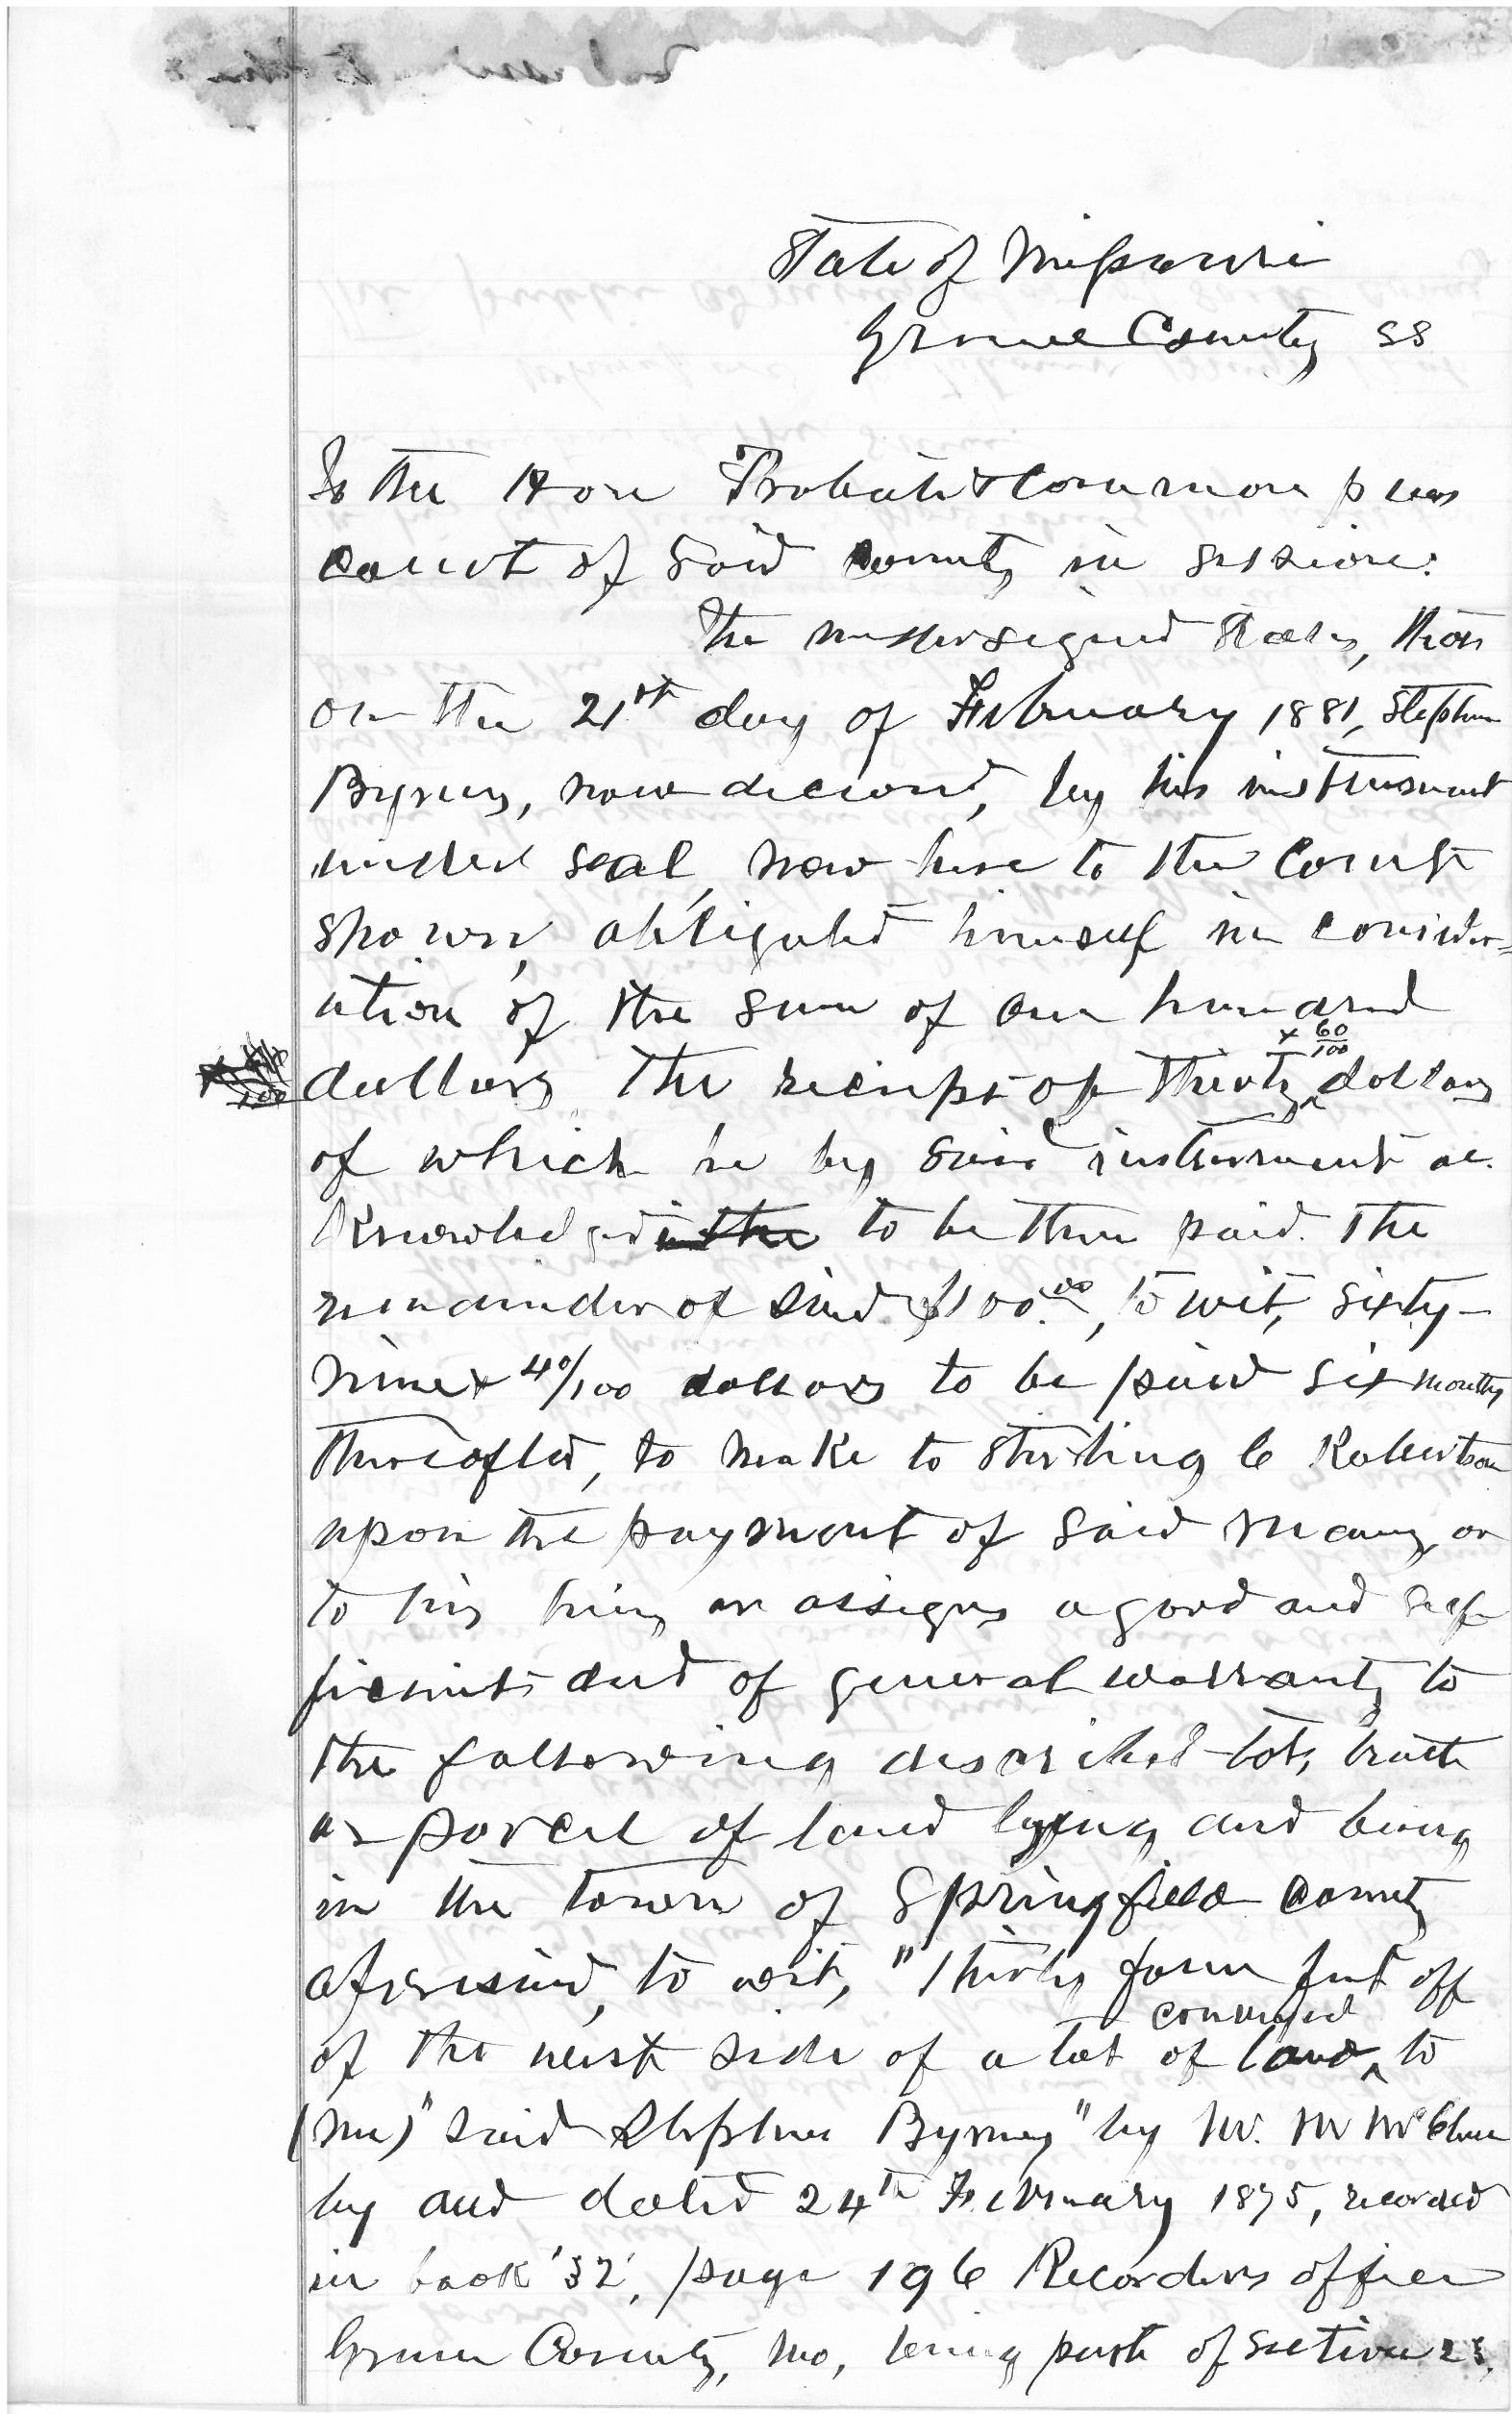 State of Missouri
Greene County SS
To the Hon Probate & Common pleas
court of said county in session:
The undersigned states, that
on the 21st day of February 1881, Stephen
Byrnes, now deceased, by his instrument
under seal, now here to the Court
shown, obligated himself in consider=
ation of the sum of one hundred
dollars the receipt of thirty & 60/100 dollars
of which he by said instrument ac.
knowledged in the to be then paid. The
remainder of said $100.00, to wit, sixty-
nine & 40/100 dollars to be paid six months
thereafter, to make to Stirling C Robertson
upon the payment of said money, or
to his heirs or assigns a good and suf
ficient deed of general warranty to
the following described lot, tract
or parcel of land lying and being
in the town of Springfield county
aforesaid, to wit, "Thirty four feet off
of the west side of a lot of land conveyed to
(me)" said Stephen Byrnes "by
by deed dated 24th February 1875, recorded
in book '32', page 196 Recorders office
Greene County, Mo, being part of section 23.